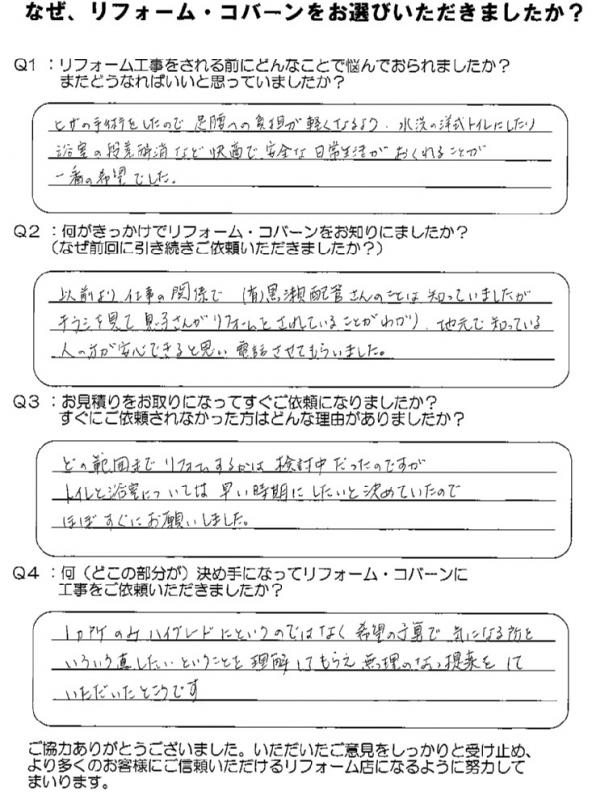 なぜ、リフォーム・コバーンをお選びいただきましたか？
Q1：リフォーム工事をされる前にどんなことで悩んでおられましたか？
またどうなればいいと思っていましたか？
ヒザの手術をしたので 足腰への負担が軽くなるよう、水洗の洋式トイレにしたり
浴室の段差解消など快適で安全な日常生活がおくれることが
一番の希望でした。
Q2：何がきっかけでリフォーム・コバーンをお知りにましたか？
（なぜ前回に引き続きご依頼いただきましたか？）
以前より仕事の関係で (有)黒瀬配管さんのことは知っていましたが
チラシを見て息子さんがリフォームをされていることがわかり、地元で知っている
人の方が安心できると思い電話させてもらいました。
Q3：お見積りをお取りになってすぐご依頼になりましたか？
すぐにご依頼されなかった方はどんな理由がありましたか？
どの範囲までリフォームするかは検討中だったのですが
トイレと浴室については早い時期にしたいと決めていたので
ほぼすぐにお願いしました。
Q4：何（どこの部分が）決め手になってリフォーム・コバーンに
工事をご依頼いただきましたか？
1ヶ所のみハイグレードにというのではなく希望の予算で気になる所を
いろいろ直したいということを理解してもらえ無理のない提案をして
いただいたところです
ご協力ありがとうございました。いただいたご意見をしっかりと受け止め、
より多くのお客様にご信頼いただけるリフォーム店になるように努力して
まいります。